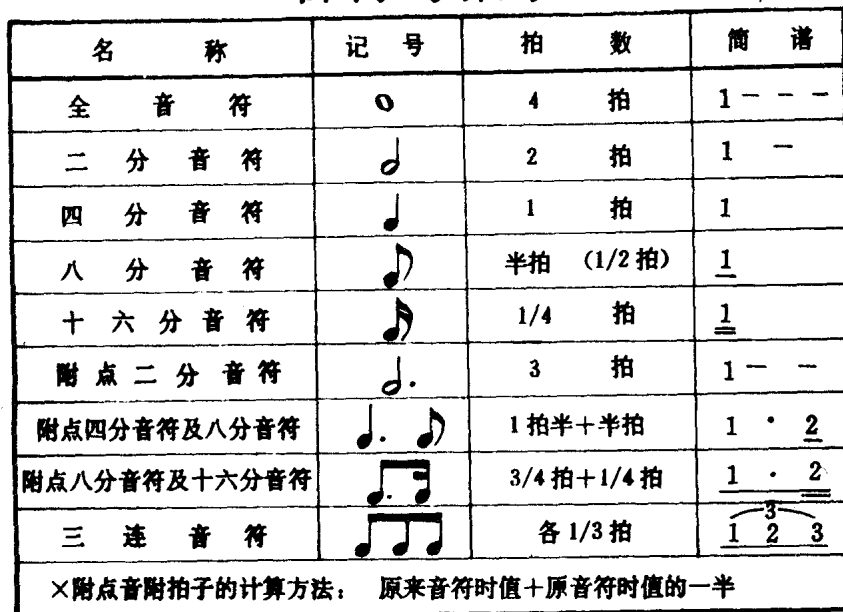 名 称 记 号 拍 数 简 谱
全 音 符 4 拍 1 - - -
二 分 音 符 2 拍 1 -
四 分 音 符 1 拍 1
八 分 音 符 半拍 (1/2 拍) 1
十 六 分 音 符 1/4 拍 1
附 点 二 分 音 符 3 拍 1 - -
附点四分音符及八分音符 1 拍半+半拍 1 · 2
附点八分音符及十六分音符 3/4 拍+1/4 拍 1 · 2
三 连 音 符 各 1/3 拍 3 1 2 3
×附点音附拍子的计算方法: 原来音符时值+原音符时值的一半